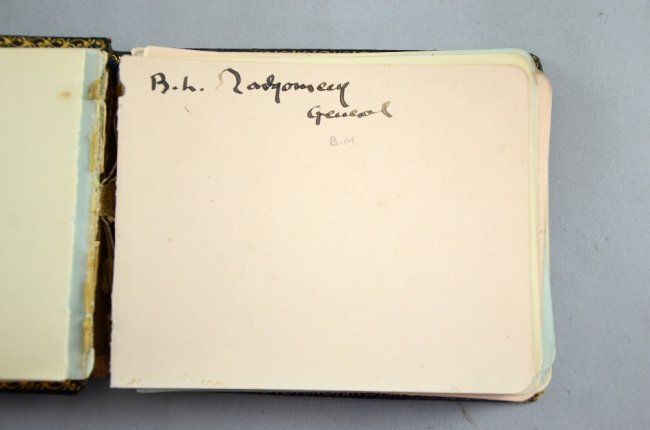 B. L. Montgomery
General
B.M.